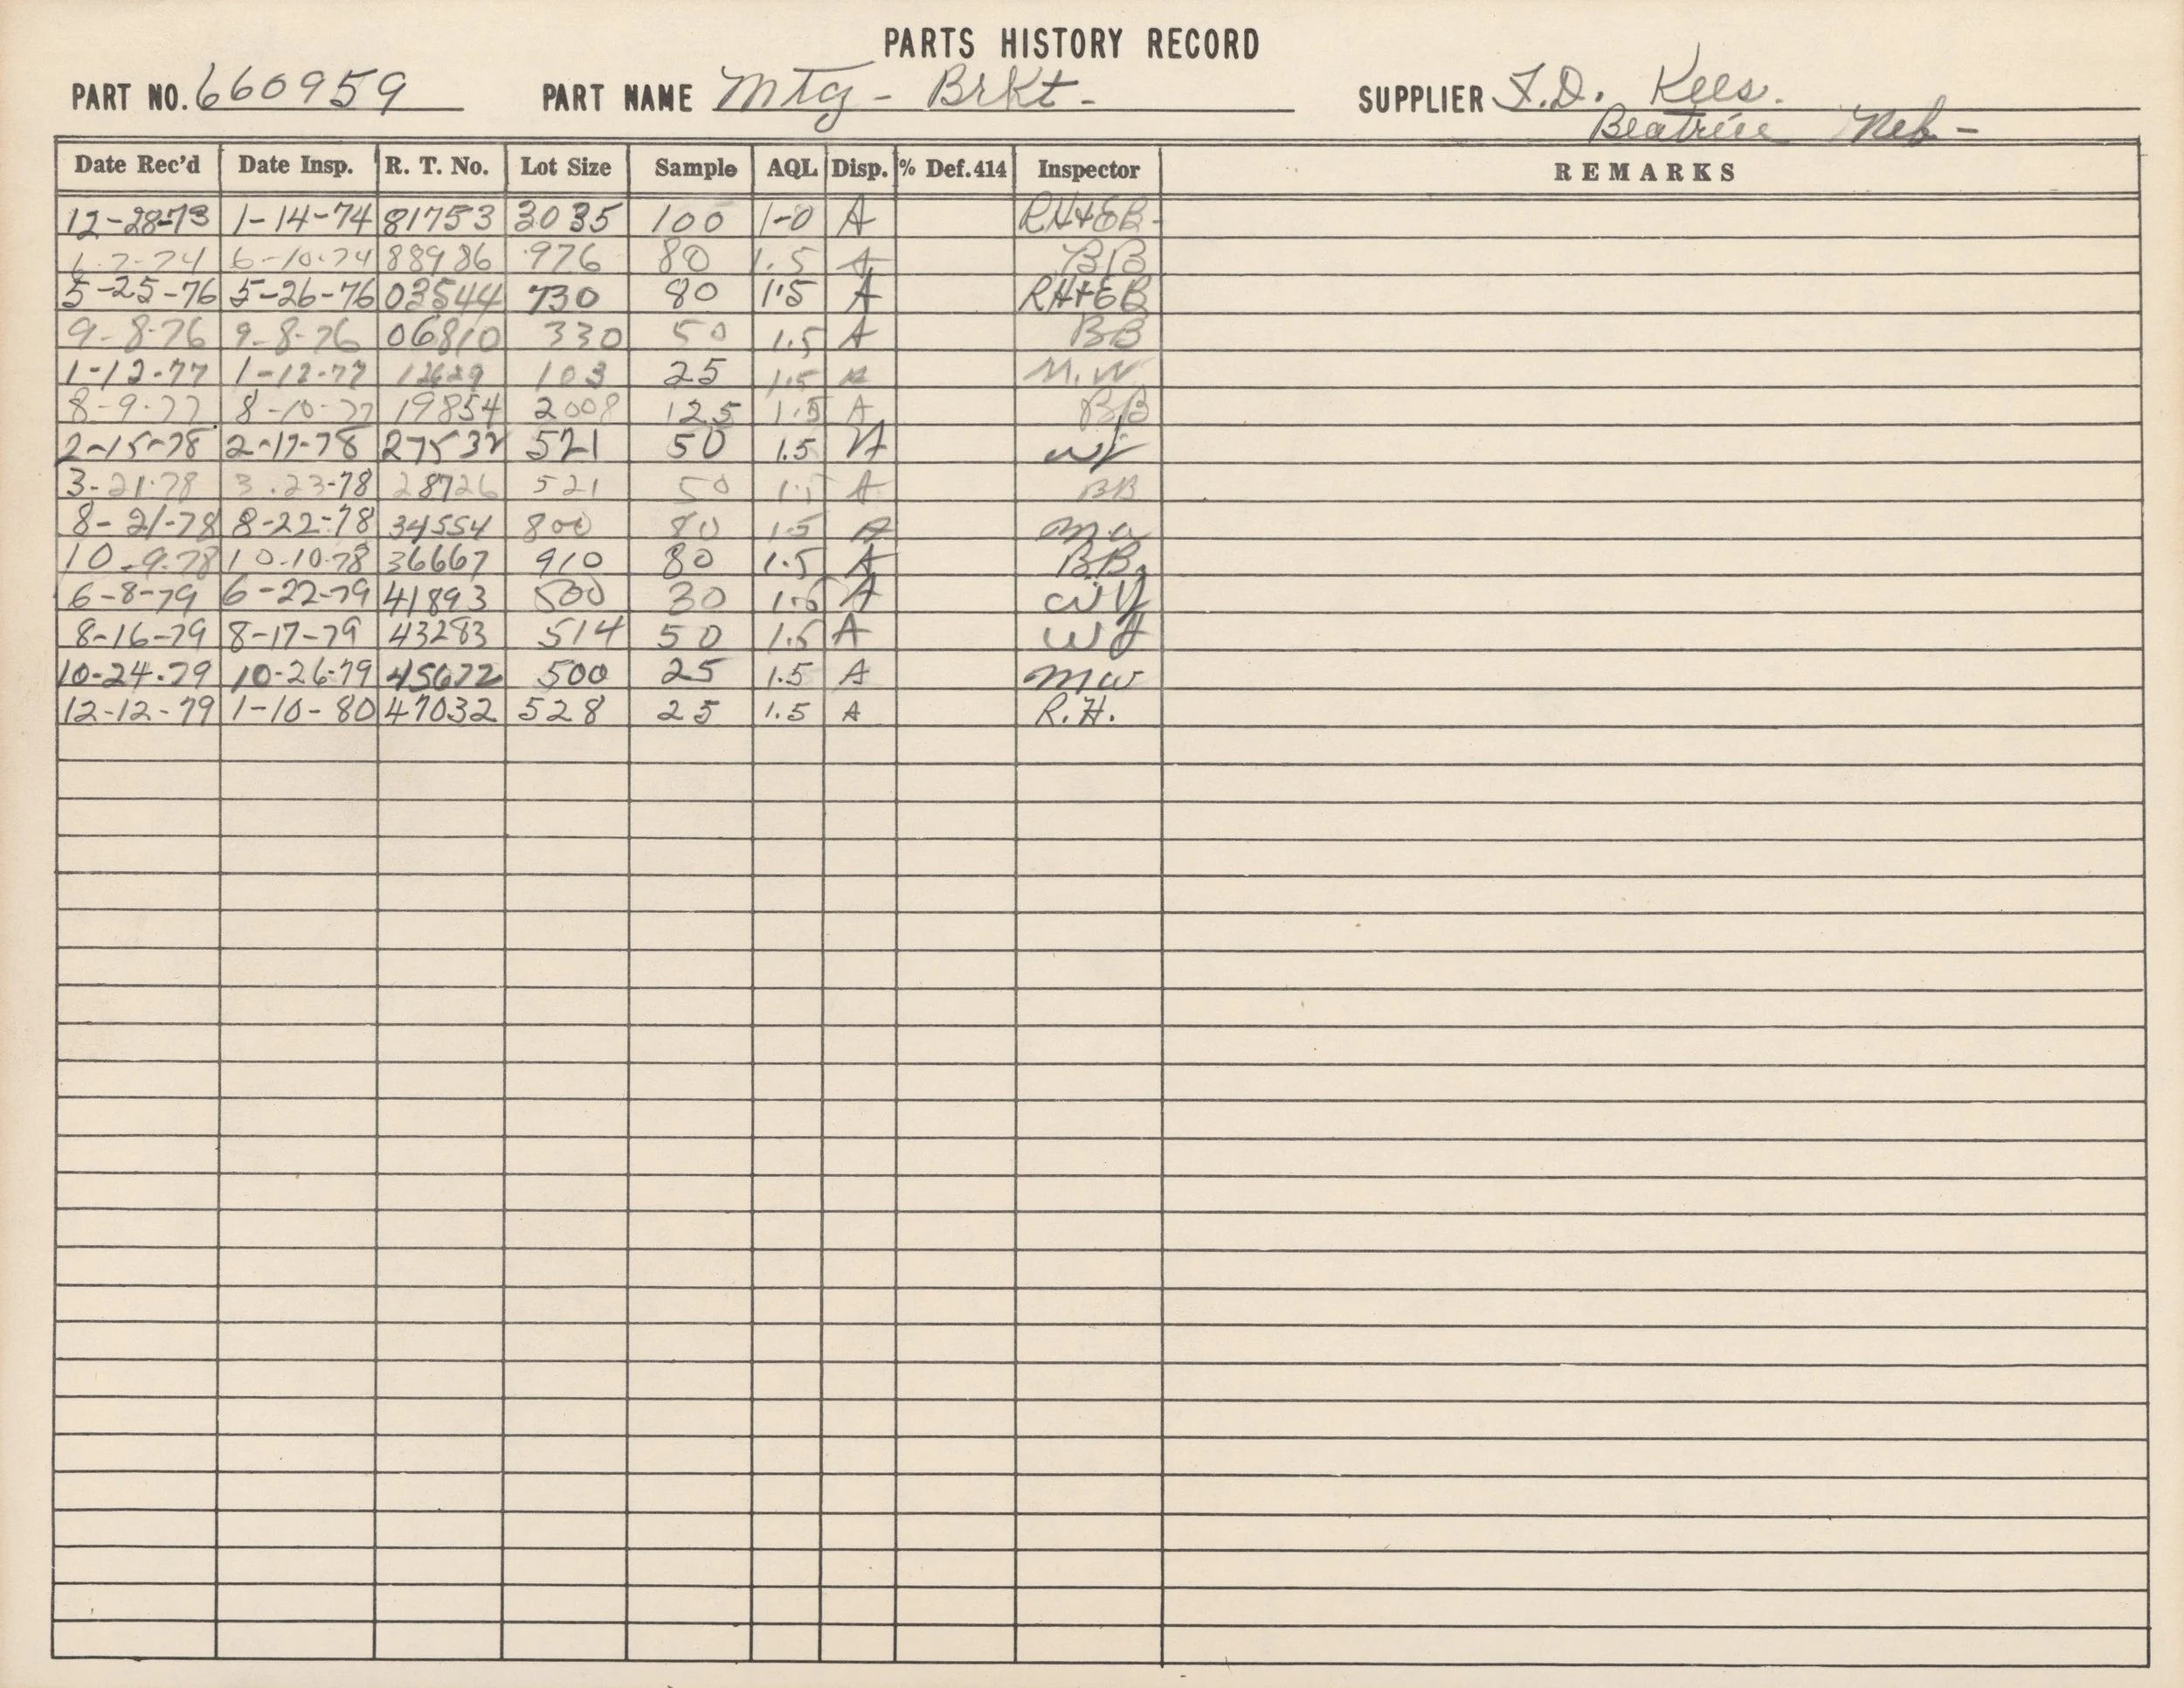 PARTS HISTORY RECORD
PART NO. 660959 PART NAME Mtg - Brkt - SUPPLIER F.D. Kees.
Beatrice Neb -
Date Rec'd Date Insp. R. T. No. Lot Size Sample AQL Disp. % Def. 414 Inspector REMARKS
12-28-73 1-14-74 81753 3035 100 1-0 A RH+EB-
6-7-74 6-10-74 88986 976 80 1.5 A BB
5-25-76 5-26-76 03544 730 80 1.5 A RH+EB
9-8-76 9-8-76 06810 330 50 1.5 A BB
1-12-77 1-12-77 103 25 1.5 A M.W
8-9-77 8-10-77 19854 2008 125 1.5 A BB
2-15-78 2-17-78 27532 521 50 1.5 A
3-21-78 3-23-78 28726 521 50 1.5 A BB
8-21-78 8-22-78 34554 800 80 1.5 A mw
10-9-78 10-10-78 36667 910 80 1.5 A BB.
6-8-79 6-22-79 41893 500 30 1.5 A
8-16-79 8-17-79 43283 514 50 1.5 A
10-24-79 10-26-79 45672 500 25 1.5 A mw
12-12-79 1-10-80 47032 528 25 1.5 A R.H.